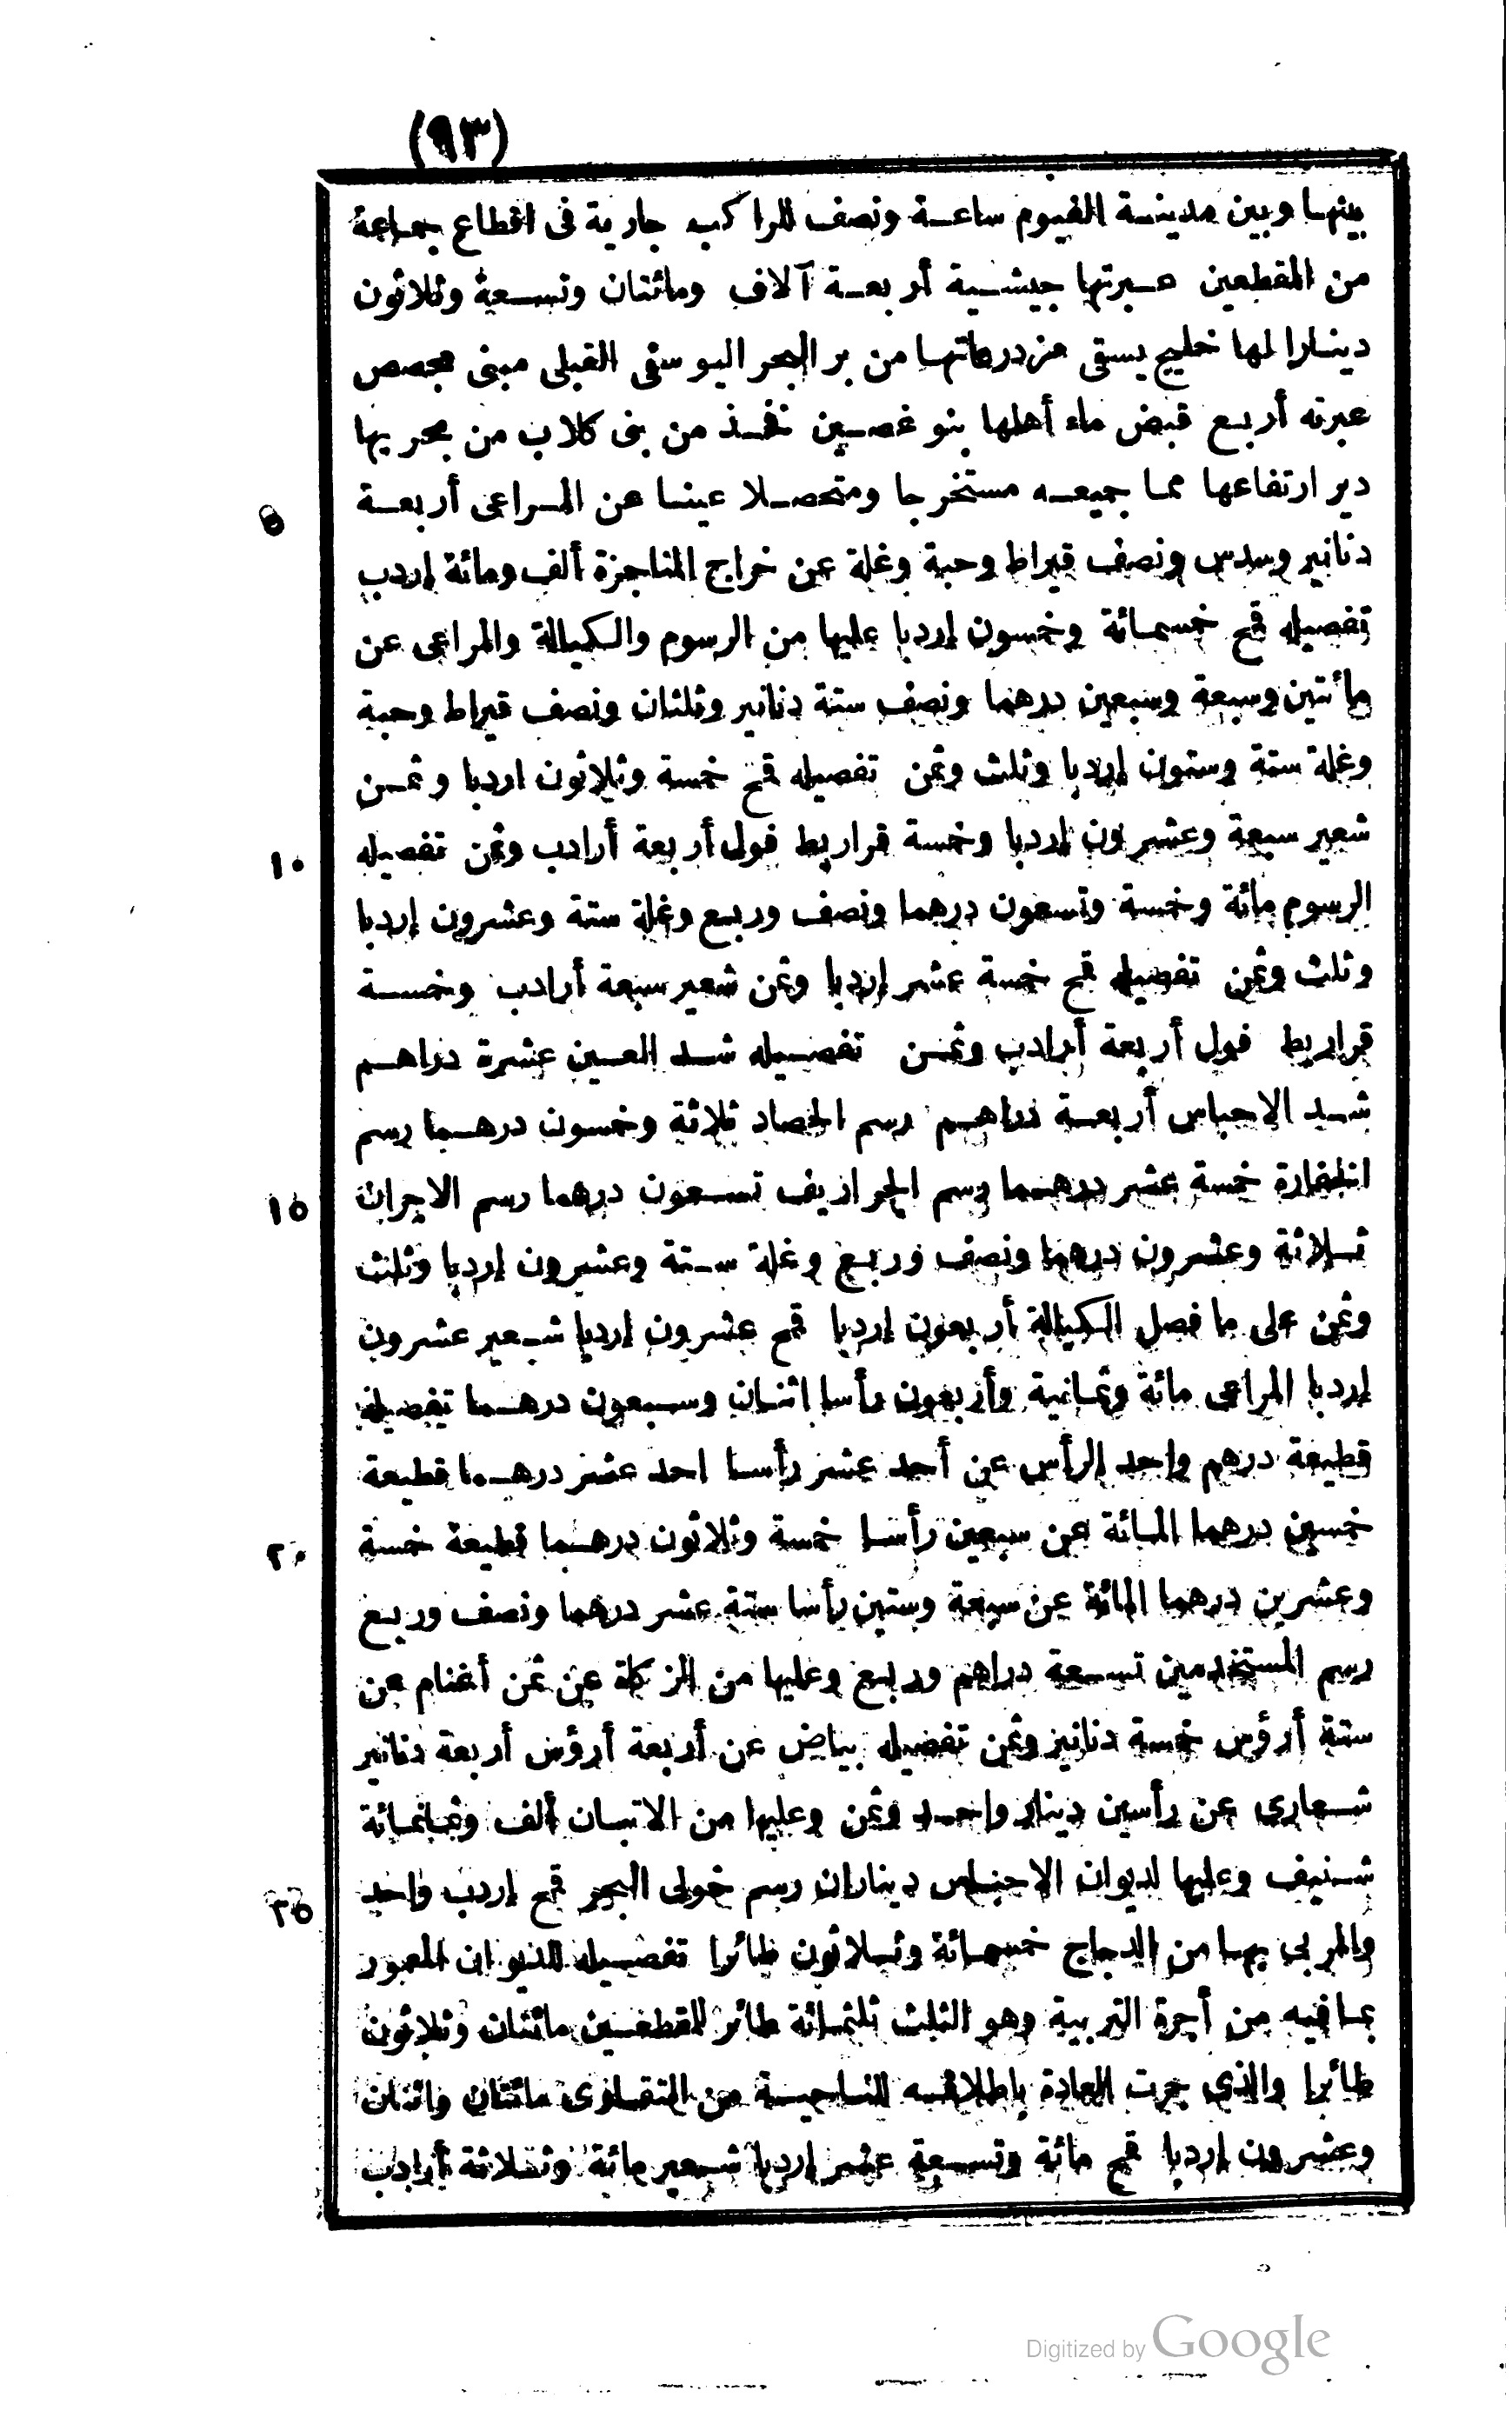 (٩٣)
بينها وبين مدينة الفيوم ساعة ونصف للراكب جارية فى اقطاع جماعة
من المقطعين عبرتها جيشية أربعة آلاف ومائتان وتسعة وثلاثون
دينارا لها خليج يسقى مزدرعاتها من بر البحر اليوسفى القبلى مبنى مجصص
عبرته أربع قبض ماء أهلها بنو غصين فخذ من بنى كلاب من بحريها
دير ارتفاعها مما جميعه مستخرجا ومتحصلا عينا عن المراعى أربعة
٥
دنانير وسدس ونصف قيراط وحبة وغلة عن خراج المناجزة ألف ومائة إردب
تفصيله قمح خسمائة وخسون إردبا عليها من الرسوم والكيالة والمراعى عن
مائتين وسبعة وسبعين درهما ونصف ستة دنانير وثلثان ونصف قيراط وحبة
وغلة ستة وستون إردبا وثلث وثمن تفصيله قمح خمسة وثلاثون اردبا وثمن
شعير سبعة وعشرون إردبا وخسة قراريط فول أربعة أرادب وثمن تفصيله
١٠
الرسوم مائة وخسة وتسعون درهما ونصف وربع وغلة ستة وعشرون إردبا
وثلث وثمن تفصيله قمح خمسة عشر إردبا وثمن شعير سبعة أرادب وخسة
قراريط فول أربعة أرادب وثمن تفصيله شد العين عشرة دراهم
شد الاحباس أربعة دراهم رسم الحصاد ثلاثة وخسون درهما رسم
الخفارة خمسة عشر درهما رسم الجراريف تسعون درهما رسم الاجران
١٥
ثلاثة وعشرون درهما ونصف وربع وغلة ستة وعشرون إردبا وثلث
وثمن على ما فصل الكيالة أربعون إردبا قمح عشرون إردبا شعير عشرون
إردبا المراعى مائة وثمانية وأربعون رأسا اثنان وسبعون درهما تفصيله
قطيعة درهم واحد الرأس عن أحد عشر رأسا احد عشر درهما قطيعة
خمسين درهما المائة عن سبعين رأسا خمسة وثلاثون درهما قطيعة خسة
٢٠
وعشرين درهما المائة عن سبعة وستين رأسا ستة عشر درهما ونصف وربع
رسم المستخدمين تسعة دراهم وربع وعليها من الزكاة عن ثمن أغنام عن
ستة أرؤس خمسة دنانير وثمن تفصيله بياض عن أربعة أرؤس أربعة دنانير
شعارى عن رأسين دينار واحد وثمن وعليها من الاتبان ألف وثمانمائة
شنيف وعليها لديوان الاحباس ديناران رسم خولى البحر قمح إردب واحد
٢٥
والمربى بها من الدجاج خمسمائة وثلاثون طائرا تفصيله للديوان المعمور
بما فيه من أجرة التربية وهو الثلث ثلثمائة طائر للمقطعين مائتان وثلاثون
طائرا والذى جرت العادة باطلاقه للناحية من التقاوى مائتان واثنان
وعشرون إردبا قمح مائة وتسعة عشر إردبا شعير مائة وثلاثة أرادب
Digitized by Google